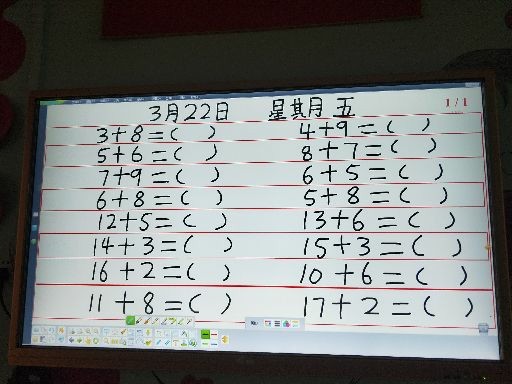 3月22日 星期月 五 1/1
3+8=( ) 4+9=( )
5+6=( ) 8+7=( )
7+9=( ) 6+5=( )
6+8=( ) 5+8=( )
12+5=( ) 13+6=( )
14+3=( ) 15+3=( )
16+2=( ) 10+6=( )
11+8=( ) 17+2=( )